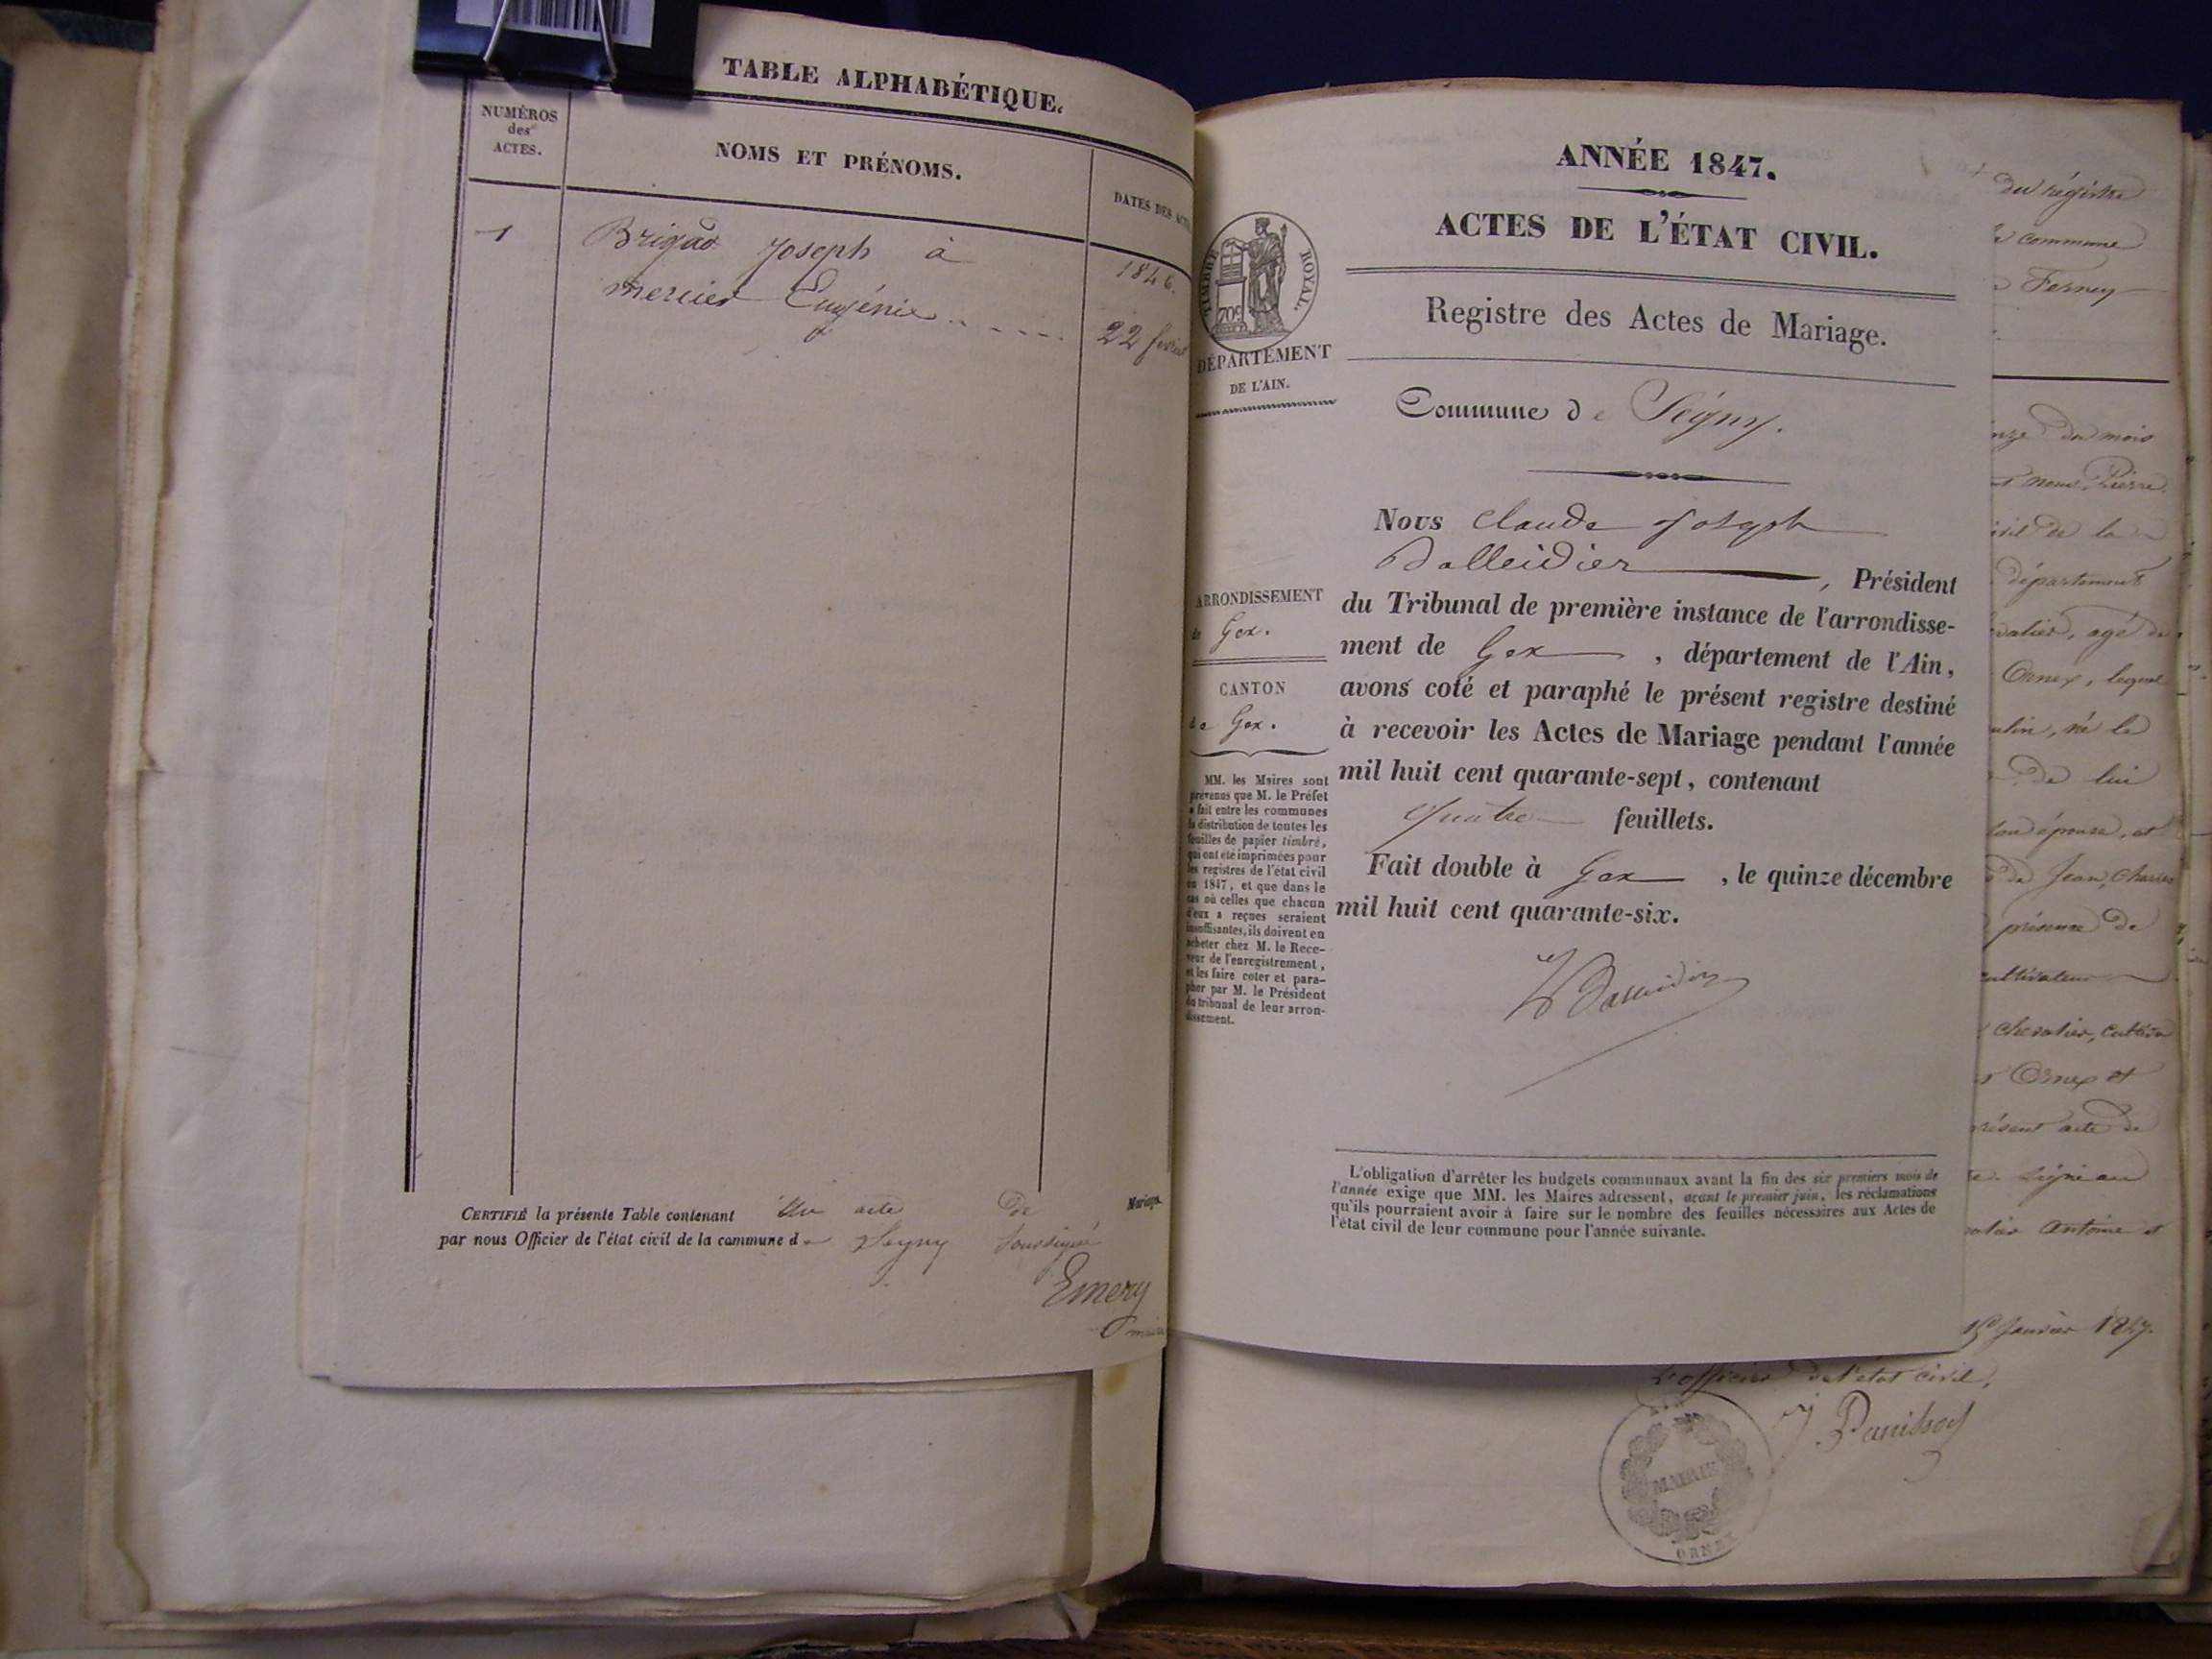 TABLE ALPHABÉTIQUE.
NUMÉROS
des
ACTES.
NOMS ET PRÉNOMS.
DATES DES ACTES
1
Brigad Joseph à
mercier Eugénie
1846.
22 fevrier
CERTIFIÉ la présente Table contenant un acte de Mariage
par nous Officier de l'état civil de la commune de Segny soussigné
Emery
maire
ANNÉE 1847.
ACTES DE L'ÉTAT CIVIL.
Registre des Actes de Mariage.
TIMBRE ROYAL.
70c
DÉPARTEMENT
DE L'AIN.
Commune de Ségny.
Nous Claude Joseph
, Président
du Tribunal de première instance de l'arrondisse-
ment de Gex , département de l'Ain,
avons coté et paraphé le présent registre destiné
à recevoir les Actes de Mariage pendant l'année
mil huit cent quarante-sept, contenant
quatre feuillets.
Fait double à Gex , le quinze décembre
mil huit cent quarante-six.
ARRONDISSEMENT
de Gex.
CANTON
de Gex.
MM. les Maires sont
prévenus que M. le Préfet
a fait entre les communes
la distribution de toutes les
feuilles de papier timbré,
qui ont été imprimées pour
les registres de l'état civil
en 1847, et que dans le
cas où celles que chacun
d'eux a reçues seraient
insuffisantes, ils doivent en
acheter chez M. le Rece-
veur de l'enregistrement,
et les faire coter et para-
pher par M. le Président
du tribunal de leur arron-
dissement.
L'obligation d'arrêter les budgets communaux avant la fin des six premiers mois de
l'année exige que MM. les Maires adressent, avant le premier juin, les réclamations
qu'ils pourraient avoir à faire sur le nombre des feuilles nécessaires aux Actes de
l'état civil de leur commune pour l'année suivante.
du régistre
commune
Ferney
du mois
nous, Pierre
de la
département
agé de
Ornex, lequel
né le
de lui
son épouse, et
de Jean, Charles
présence de
cultivateur
chevalier, cultiva
Ornex et
présent acte de
Antoine et
Janvier 1847.
L'officier de l'état civil,
MAIRIE
ORNEX